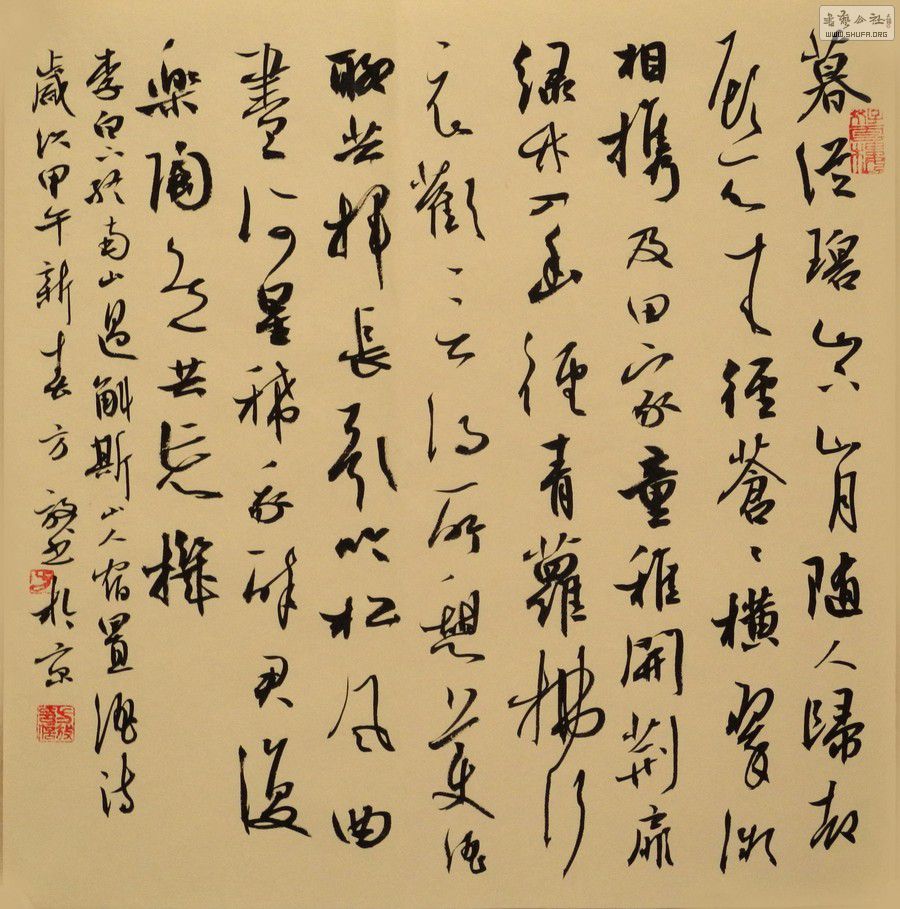 暮從碧山下山月隨人歸却
顧所來徑蒼〻橫翠微
相攜及田家童稚開荊扉
綠竹入幽徑青蘿拂行
衣歡言得所憩美酒
聊共揮長歌吟松風曲
盡河星稀我醉君復
樂陶然共忘機
李白下終南山過斛斯山人宿置酒詩
歲次甲午新春方放書於京
書藝公社
WWW.SHUFA.ORG